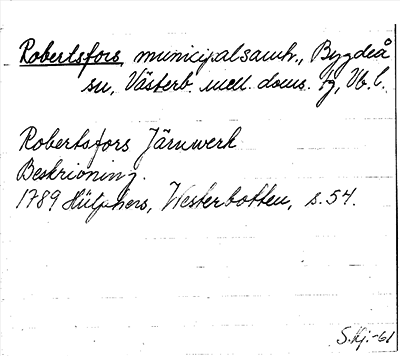 Robertsfors, municipalsamh., Bygdeå
sn, Västerb. mell. doms. tg, Vb. l.
Robertsfors Järnwerk
Beskrivning.
1789 Hülphers, Westerbotten, s. 54.
S.Hj.-61